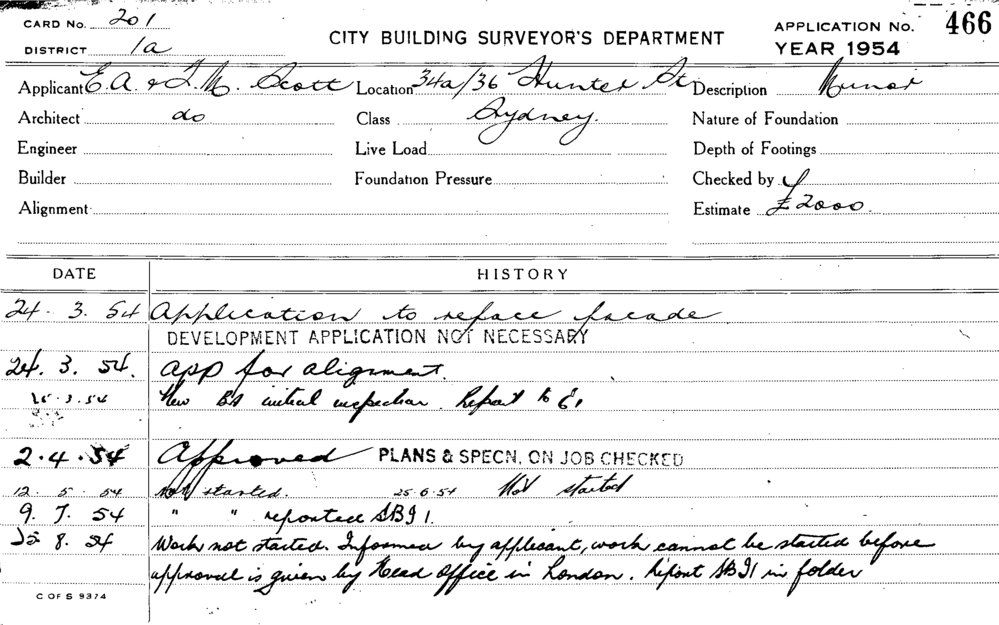 CARD No. 201
DISTRICT 1a
CITY BUILDING SURVEYOR'S DEPARTMENT
APPLICATION No. 466
YEAR 1954
Applicant E.A. & T.M. Scott Location 34a/36 Hunter St Description Minor
Architect do Class Sydney. Nature of Foundation
Engineer Live Load Depth of Footings
Builder Foundation Pressure Checked by
Alignment Estimate £2000.
DATE HISTORY
24. 3. 54 Application to reface facade
DEVELOPMENT APPLICATION NOT NECESSARY
24. 3. 54. app for alignment.
3.54 initial inspection. Report to
2.4.54 Approved PLANS & SPECN. ON JOB CHECKED
12. 5. 54 not started. 25.6.54 Not started
9. 7. 54 " " reported SBI 1.
8. 54 Work not started. Informed by applicant, work cannot be started before
approval is given by Head Office in London. Report SBI 1 in folder
C OF S 9374